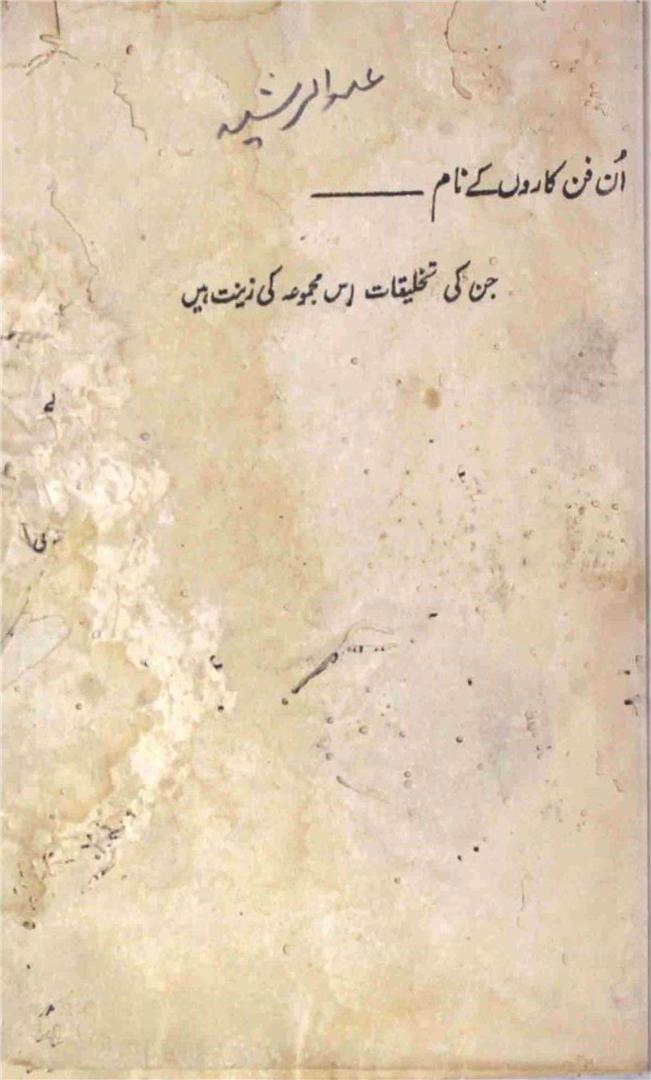 عبدالرشید
اُن فن کاروں کے نام ــــــــ
جن کی تخلیقات اِس مجموعہ کی زینت ہیں